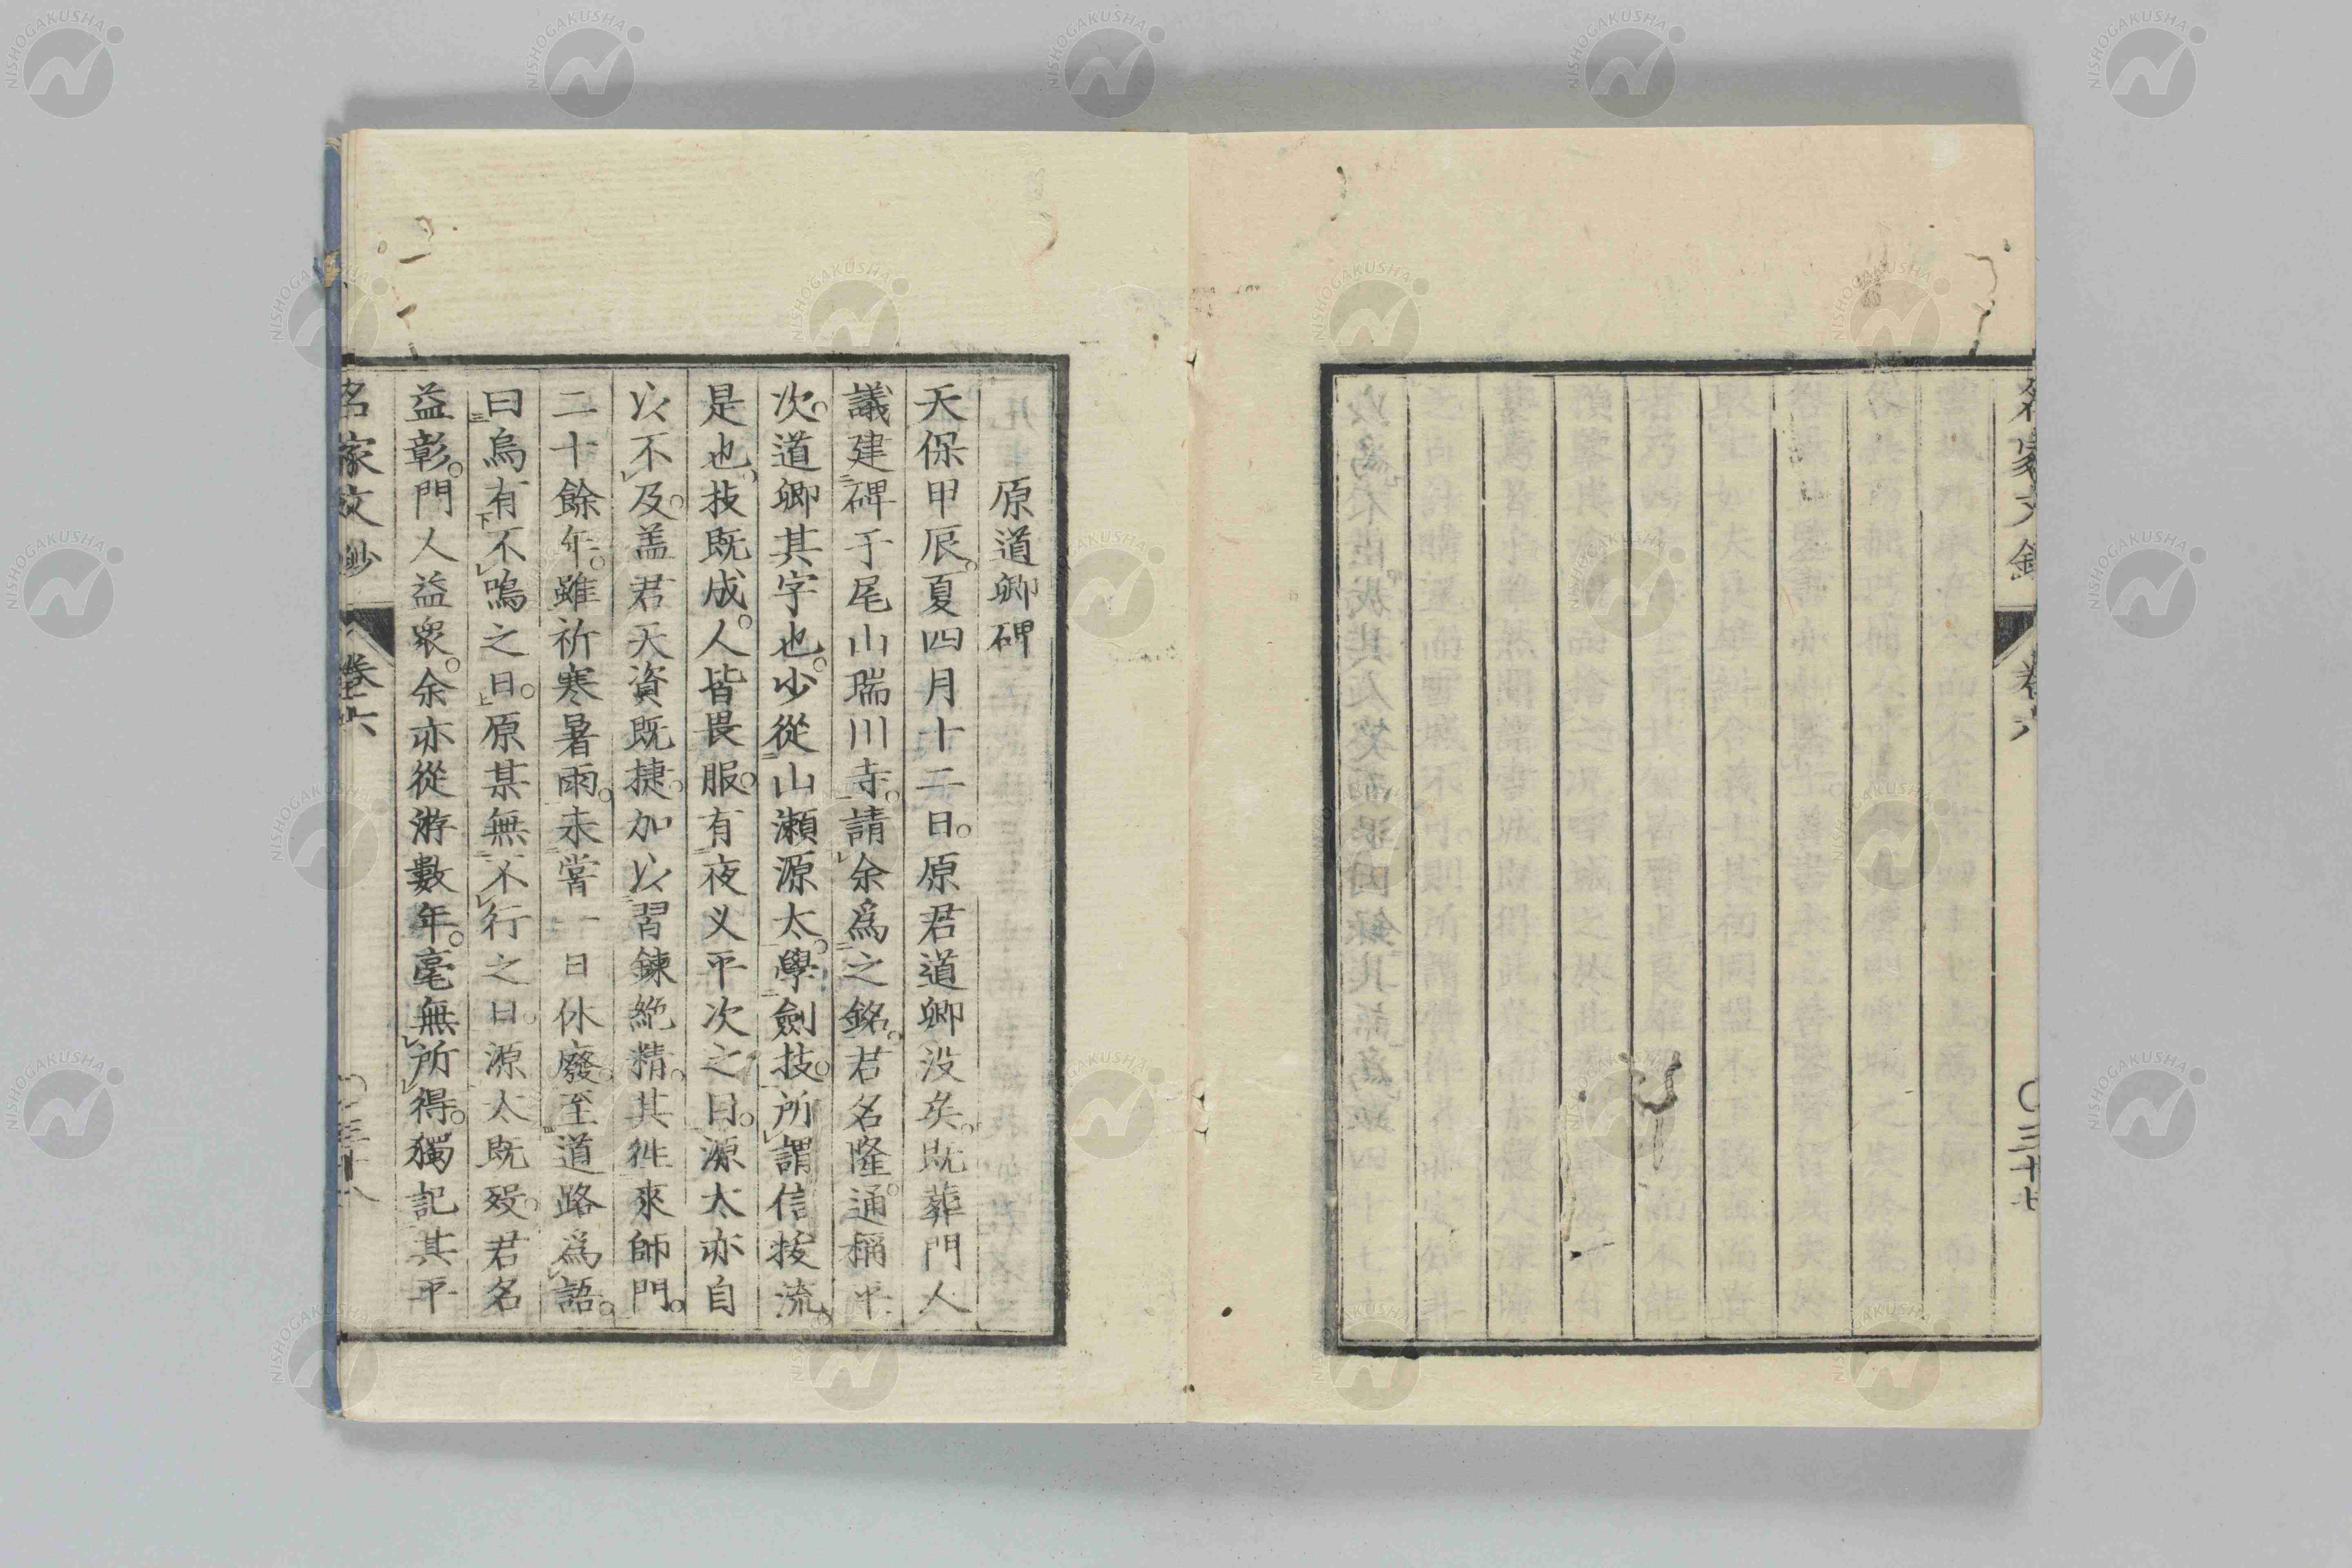 名家文鈔
卷六
〇三十七
原道卿碑
天保甲辰。夏四月十二日。原君道卿没矣。既葬門人
議建碑于尾山瑞川寺。請余爲之銘。君名隆。通稱平
次。道卿其字也。少從山瀬源太。學劍技。所謂信抜流
是也。技既成。人皆畏服。有夜叉平次之目。源太亦自
以不及。盖君天資既捷。加以習鍊絶精。其徃來師門。
二十餘年。雖祈寒暑雨。未嘗一日休廢。至道路爲語。
曰烏有不鳴之日。原某無不行之日。源太既歿。君名
益彰。門人益衆。余亦從游數年。毫無所得。獨記其平
名家文鈔
卷六
〇三十八